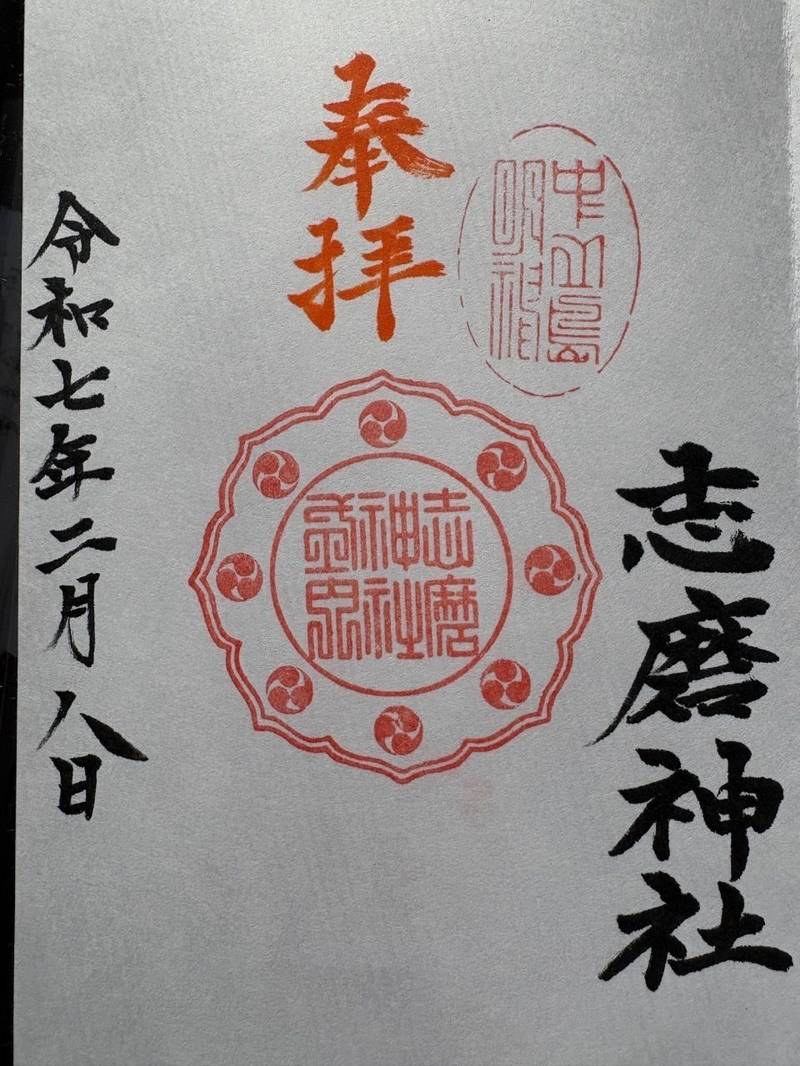 志磨神社
中之島
明神
奉拝
志磨
神社
令和七年二月八日